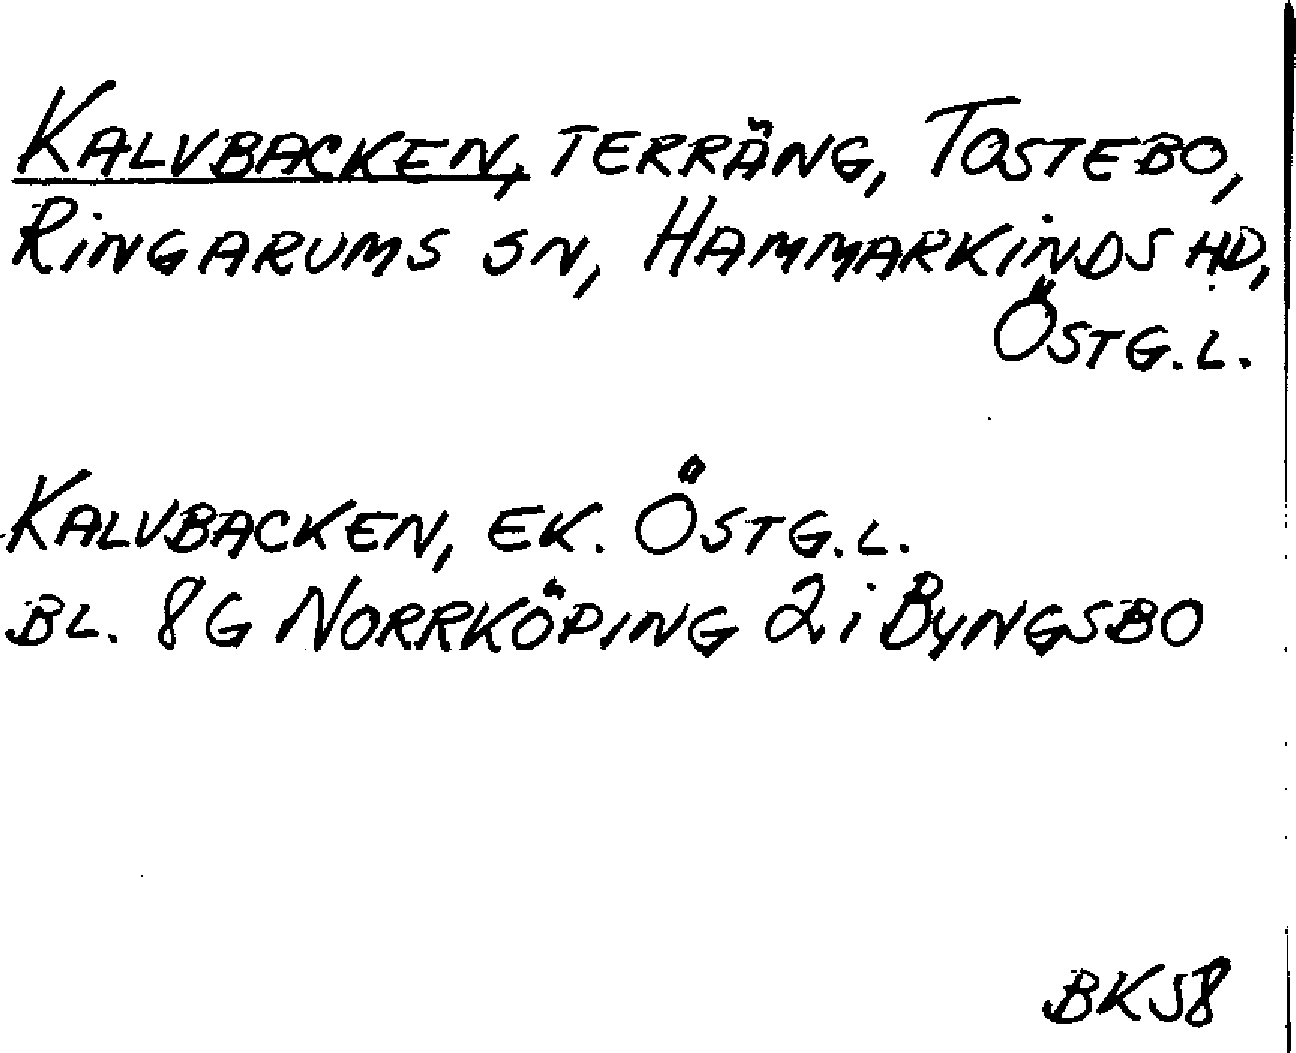 KALVBACKEN, TERRÄNG, TOSTEBO,
RINGARUMS SN, HAMMARKINDS HD,
ÖSTG.L.
KALVBACKEN, EK. ÖSTG.L.
BL. 8G NORRKÖPING 2i BYNGSBO
BK58